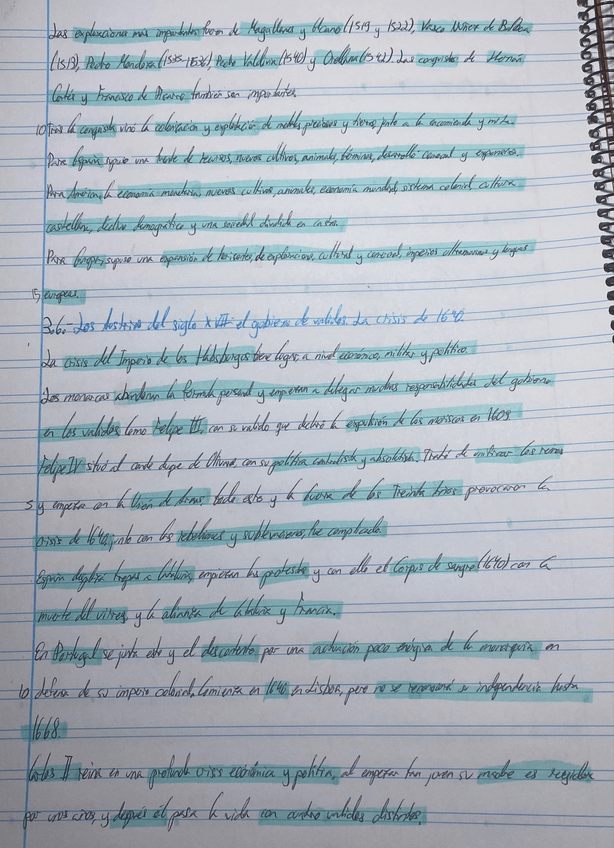 Las exploraciones más importantes fueron de Magallanes y Elcano (1519 y 1522), Vasco Núñez de Balboa
(1513), Pedro Mendoza (1535-1536), Pedro Valdivia (1540) y Orellana (1542). Las conquistas de Hernán
Cortés y Francisco de Pizarro también son importantes.
10 Tras la conquista vino la colonización y explotación de metales preciosos y tierras, junto a la encomienda y mita.
Para España supuso una fuente de recursos, nuevos cultivos, animales, desarrollo comercial y expansión.
Para América, la economía monetaria, nuevos cultivos, animales, economía mundial, sistema colonial, cultura
castellana, declive demográfico y una sociedad dividida en castas.
Para Europa, supuso una expansión de horizontes, de exploraciones, cultural y comercial, imperios ultramarinos y lenguas
15 europeas.
3.6.- Los Austrias del siglo XVII: el gobierno de validos. La crisis de 1640.
La crisis del Imperio de los Habsburgos tiene lugar a nivel económico, militar y político.
Los monarcas abandonan la forma personal y empiezan a delegar muchas responsabilidades del gobierno
en los validos, como Felipe III, con su valido que declaró la expulsión de los moriscos en 1609.
Felipe IV situó al conde duque de Olivares, con su política centralista y absolutista. Trató de unificar los reinos
5 y empezar con la Unión de Armas, todo esto y la Guerra de los Treinta Años provocaron la
crisis de 1640, junto con las rebeliones y sublevaciones, fue complicado.
España desplaza tropas a Cataluña, empiezan las protestas y con ello el Corpus de sangre (1640) con la
muerte del virrey, y la alianza de Cataluña y Francia.
En Portugal se junta esto y el descontento por una actuación poco enérgica de la monarquía en
10 defensa de su imperio colonial. Comienza en 1640 en Lisboa, pero no se reconoció su independencia hasta
1668.
Carlos II reina en una profunda crisis económica y política, al empezar tan joven su madre es regidora
por unos años, y después él pasa la vida con cuatro validos distintos.